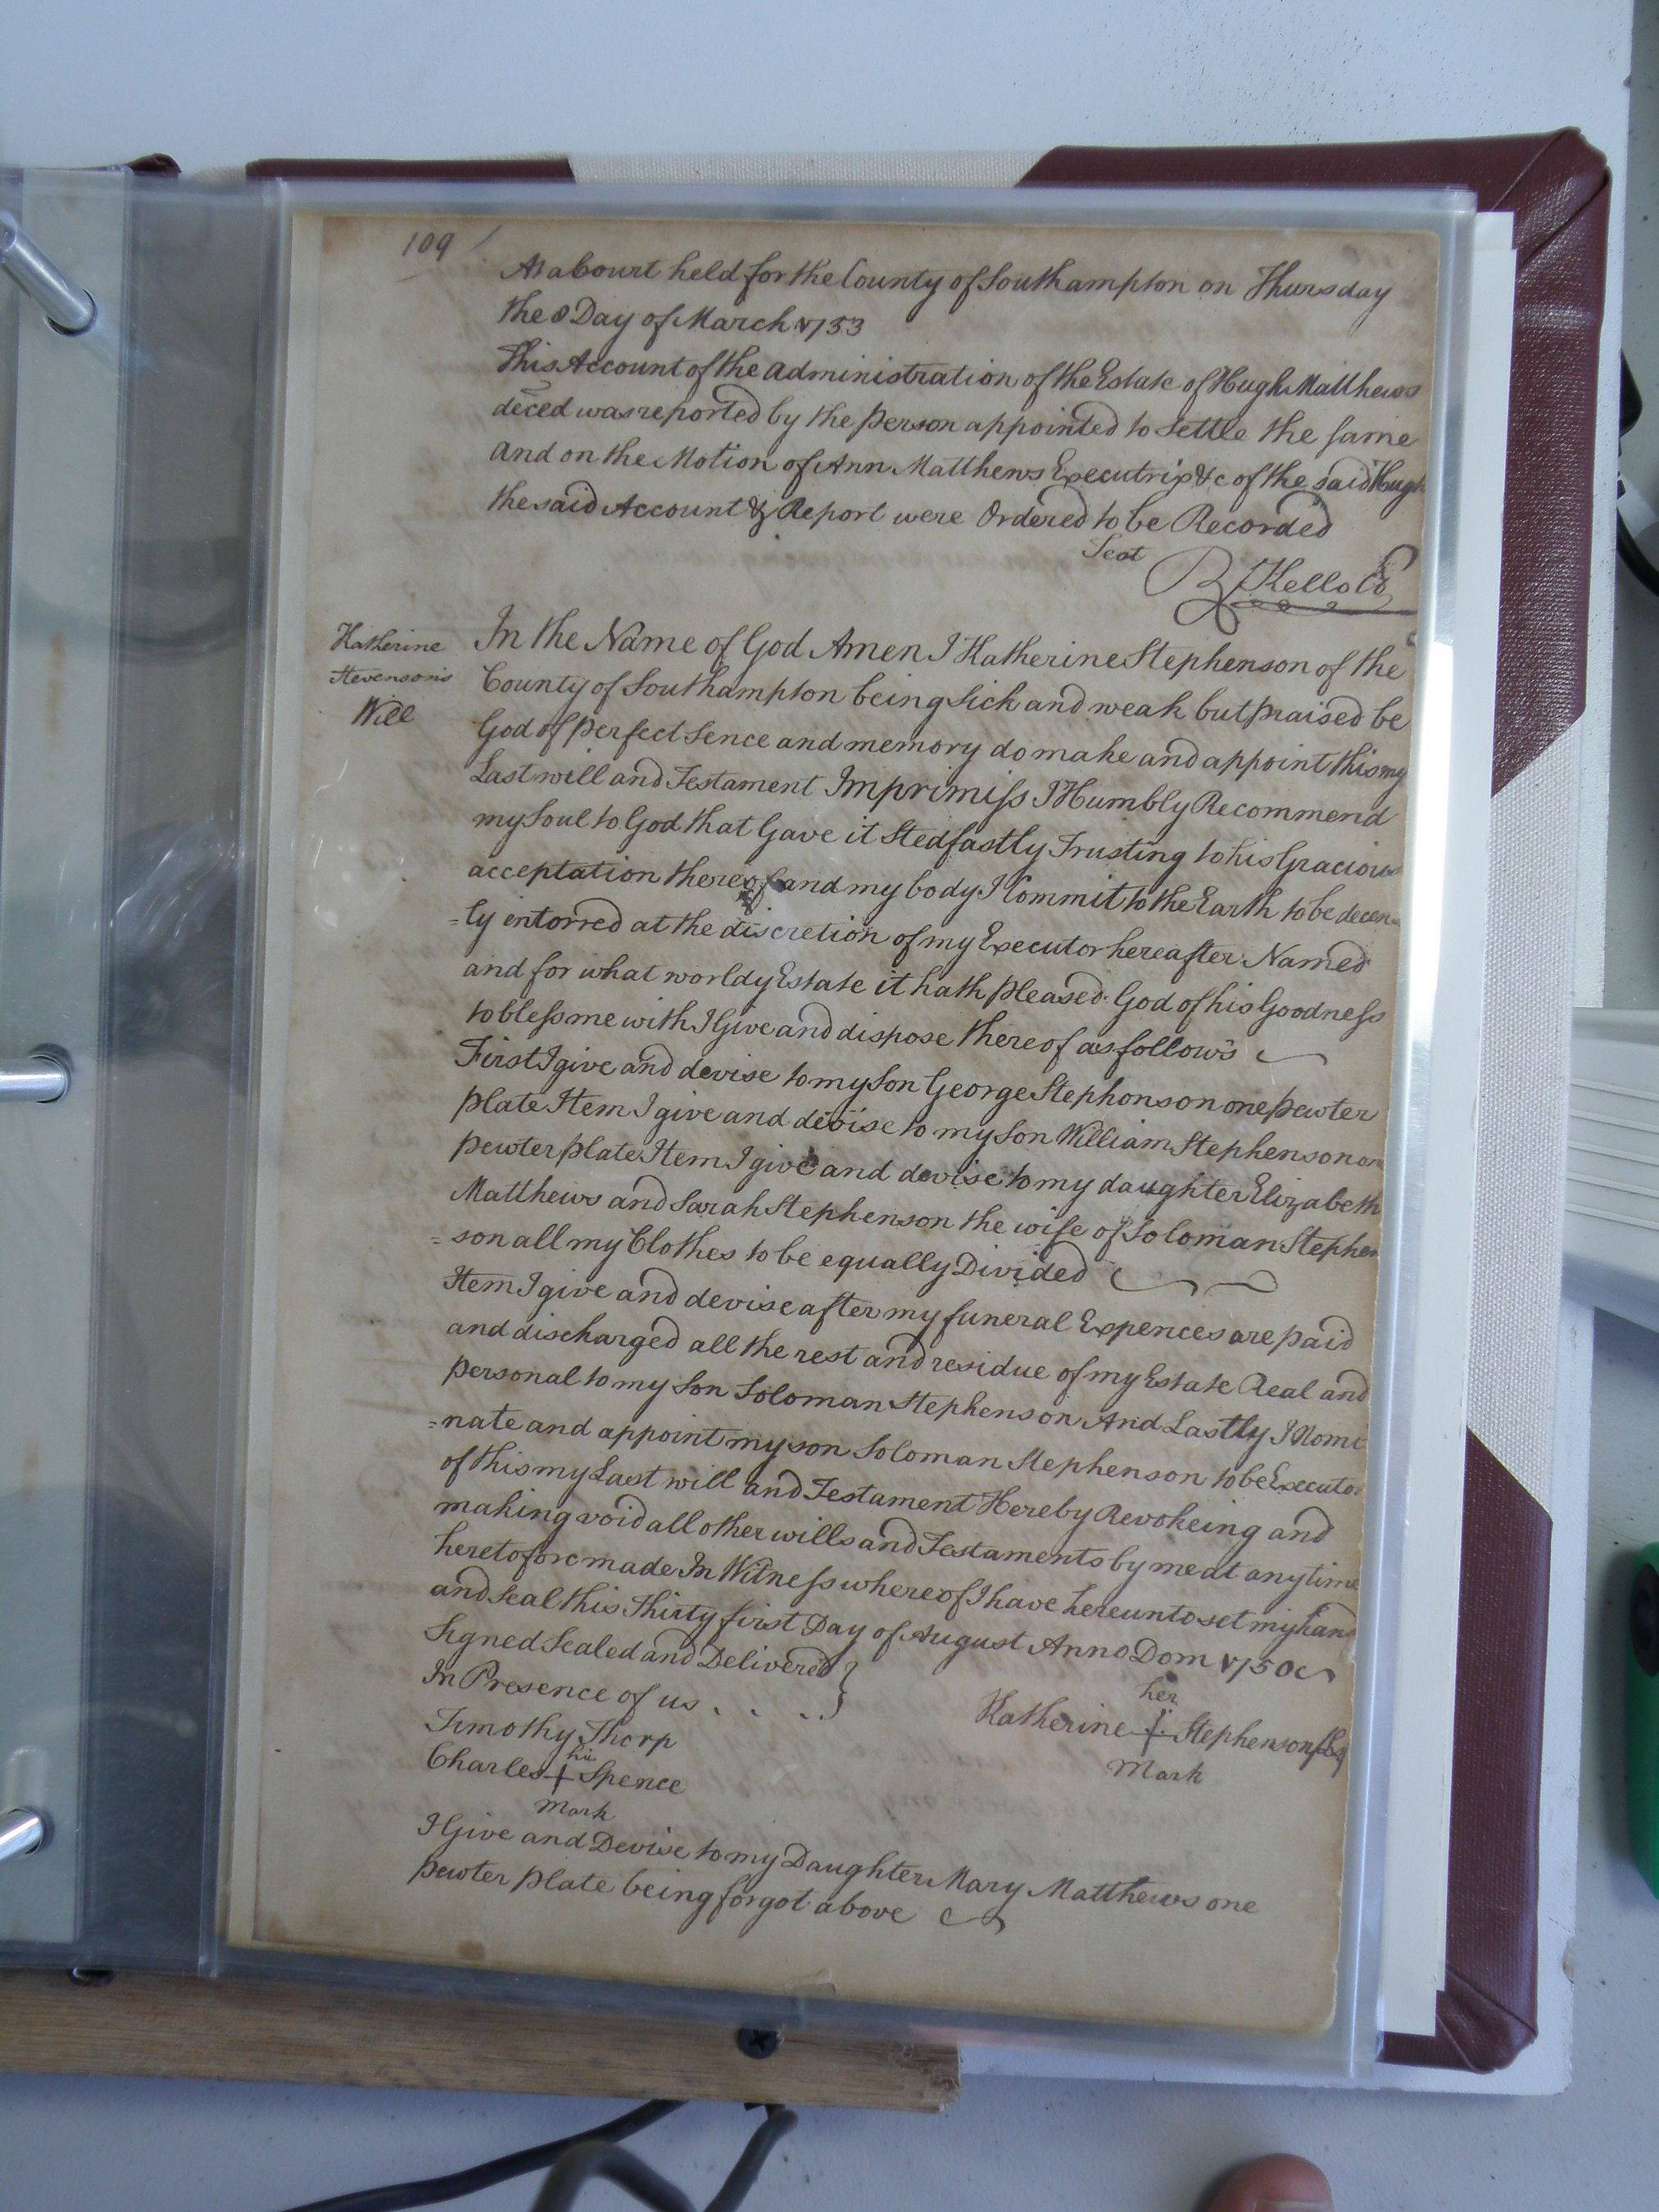 109
At a Court held for the County of Southampton on Thursday
the 8 Day of March 1753
This Account of the administration of the Estate of Hugh Matthews
deced was reported by the person appointed to settle the same
and on the Motion of Ann Matthews Executrix &c of the said Hugh
the said Account & Report were Ordered to be Recorded
Test
R Kello
Katherine
Stevenson's
Will
In the Name of God Amen I Katherine Stephenson of the
County of Southampton being Sick and weak but praised be
God of perfect Sence and memory do make and appoint this my
Last will and Testament Imprimiss I Humbly Recommend
my Soul to God that Gave it Stedfastly Trusting to his Gracious
acceptation thereof and my body I Commit to the Earth to be decen
=ly entorred at the discretion of my Executor hereafter Named
and for what worldy Estate it hath pleased God of his Goodness
to bless me with I Give and dispose thereof as follows
First I give and devise to my Son George Stephonson one pewter
plate Item I give and devise to my Son William Stephenson one
pewter plate Item I give and devise to my daughter Elizabeth
Matthews and Sarah Stephenson the wife of Soloman Stephen
=son all my Clothes to be equally Divided
Item I give and devise after my funeral Expences are paid
and discharged all the rest and residue of my Estate Real and
personal to my Son Soloman Stephenson And Lastly I Nomi
=nate and appoint my son Soloman Stephenson to be Executor
of this my Last will and Testament Hereby Revokeing and
making void all other wills and Testaments by me at any time
heretofore made In Witness whereof I have hereunto set my hand
and Seal this Thirty first Day of August Anno Dom 1750
Signed Sealed and Delivered }
In Presence of us . . . .
her
Katherine + Stephenson
Mark
Timothy Thorp
his
Charles + Spence
Mark
I Give and Devise to my Daughter Mary Matthews one
pewter plate being forgot above